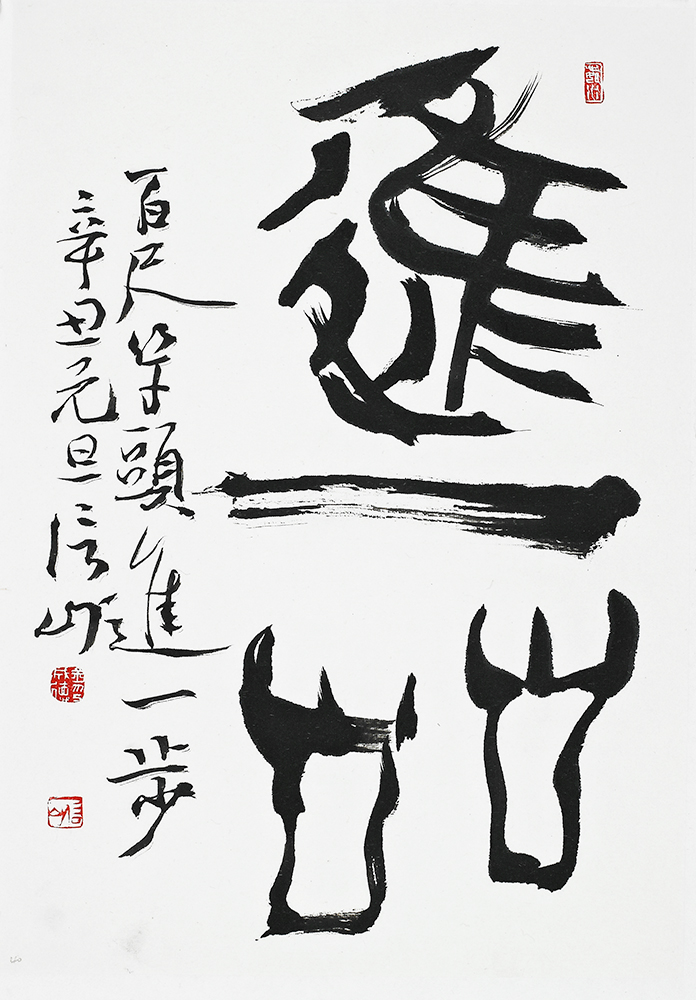 進一步
百尺竿頭進一步
辛丑元旦信山
信山